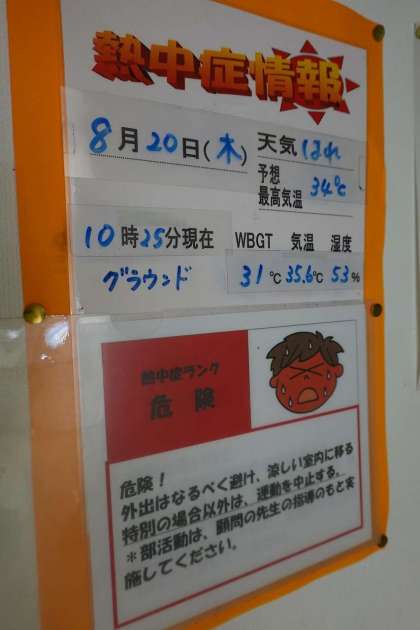 熱中症情報
8月20日(木) 天気 はれ
予想
最高気温 34℃
10時25分現在 WBGT 気温 湿度
グラウンド 31℃ 35.6℃ 53%
熱中症ランク
危険
危険！
外出はなるべく避け、涼しい室内に移る
特別の場合以外は、運動を中止する。
＊部活動は、顧問の先生の指導のもと実
施してください。